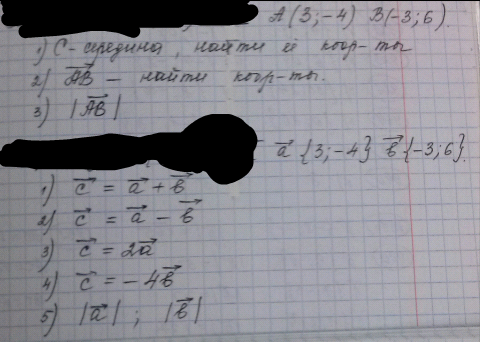 A(3;-4) B(-3;6).
1) C - середина, найти её коор-ты
2) \overrightarrow{AB} - найти коор-ты.
3) |\overrightarrow{AB}|
\vec{a} {3;-4} \vec{b} {-3;6}.
1) \vec{c} = \vec{a} + \vec{b}
2) \vec{c} = \vec{a} - \vec{b}
3) \vec{c} = 2\vec{a}
4) \vec{c} = -4\vec{b}
5) |\vec{a}| ; |\vec{b}|